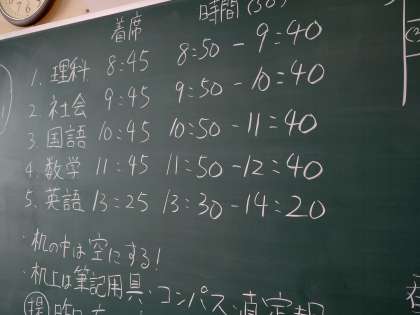 着席 時間(50)
1. 理科 8:45 8:50 - 9:40
2. 社会 9:45 9:50 - 10:40
3. 国語 10:45 10:50 - 11:40
4. 数学 11:45 11:50 - 12:40
5. 英語 13:25 13:30 - 14:20
・机の中は空にする!
・机上は筆記用具、コンパス、直定規